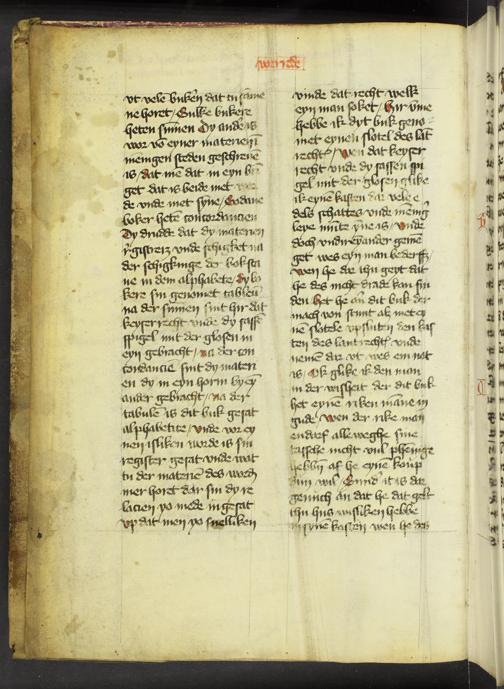 vorrede
vt vele buken dat tu same
ne horet / Sulke bukere
heten sumen Dy ander is
wor vo eyner materien in
menigen steden geschreue
is / dat me dat in eyn bu
get dat is beide met
de vnde met syne / Sodane
boker hete concordancien
Dy drudde dat dy materien
rigistreret vnde schighet na
der schigkinge der boksta
ne in dem alphabete / Dy bo
kere sin genomet tabulen
na der sumen sint hir dat
keyserrecht vnde dy sass
spigel mit der glosen in
eyn gebracht / na der con
cordancie sint dy materi
en dy in eyn horen by ey
ander gebracht / na der
tabule is dit buk gesat
alphabetite / vnde vor ey
nen isliken worde is sin
register gesat vnde wat
tu der materien des wordes
mer horet dar sin dy re
lacien yo mede in gesat
vp dat men yo snelliken
vinde dat recht welk
eyn man soket / Hir vme
hebbe ik dyt buk geno
met eynen slotel des lant
rechtes / Wen dat keyser
recht vnde dy sassen spi
gel mit der glosen glike
ik eyne kasten dar vele e
dels schattes vnde menig
leye munte yne is / Vnde
doch vndireynander geme
get wes eyn man bederff
wen he des ihn geyt dat
he des nicht drade kan fin
den Het he an dit buk der
mach von stunt als met ey
ne slotele vpsluten den kas
ten des lantrecht vnde
nemen dar vt wes em not
is / Ok glike ik den man
in der wisheit der dit buk
het eyne riken manne in
gude / Wen der rike man
endarf alle weghe sine
tassche nicht vul phenige
hebbin af he eyne koup
dun wil / Sundir it is dar
genuch an dat he dat gelt
ihn hus wisliken hebbe
in syne kasten wen he des